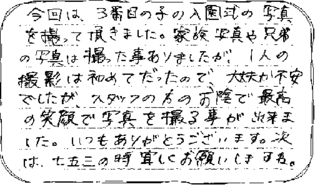 今回は、3番目の子の入園式の写真
を撮って頂きました。家族写真や兄弟
の写真は撮った事ありましたが、1人の
撮影は初めてだったので、大丈夫か不安
でしたが、スタッフの方のお陰で最高
の笑顔で写真を撮る事が出来ま
した。いつもありがとうございます。次
は、七五三の時宜しくお願いします。